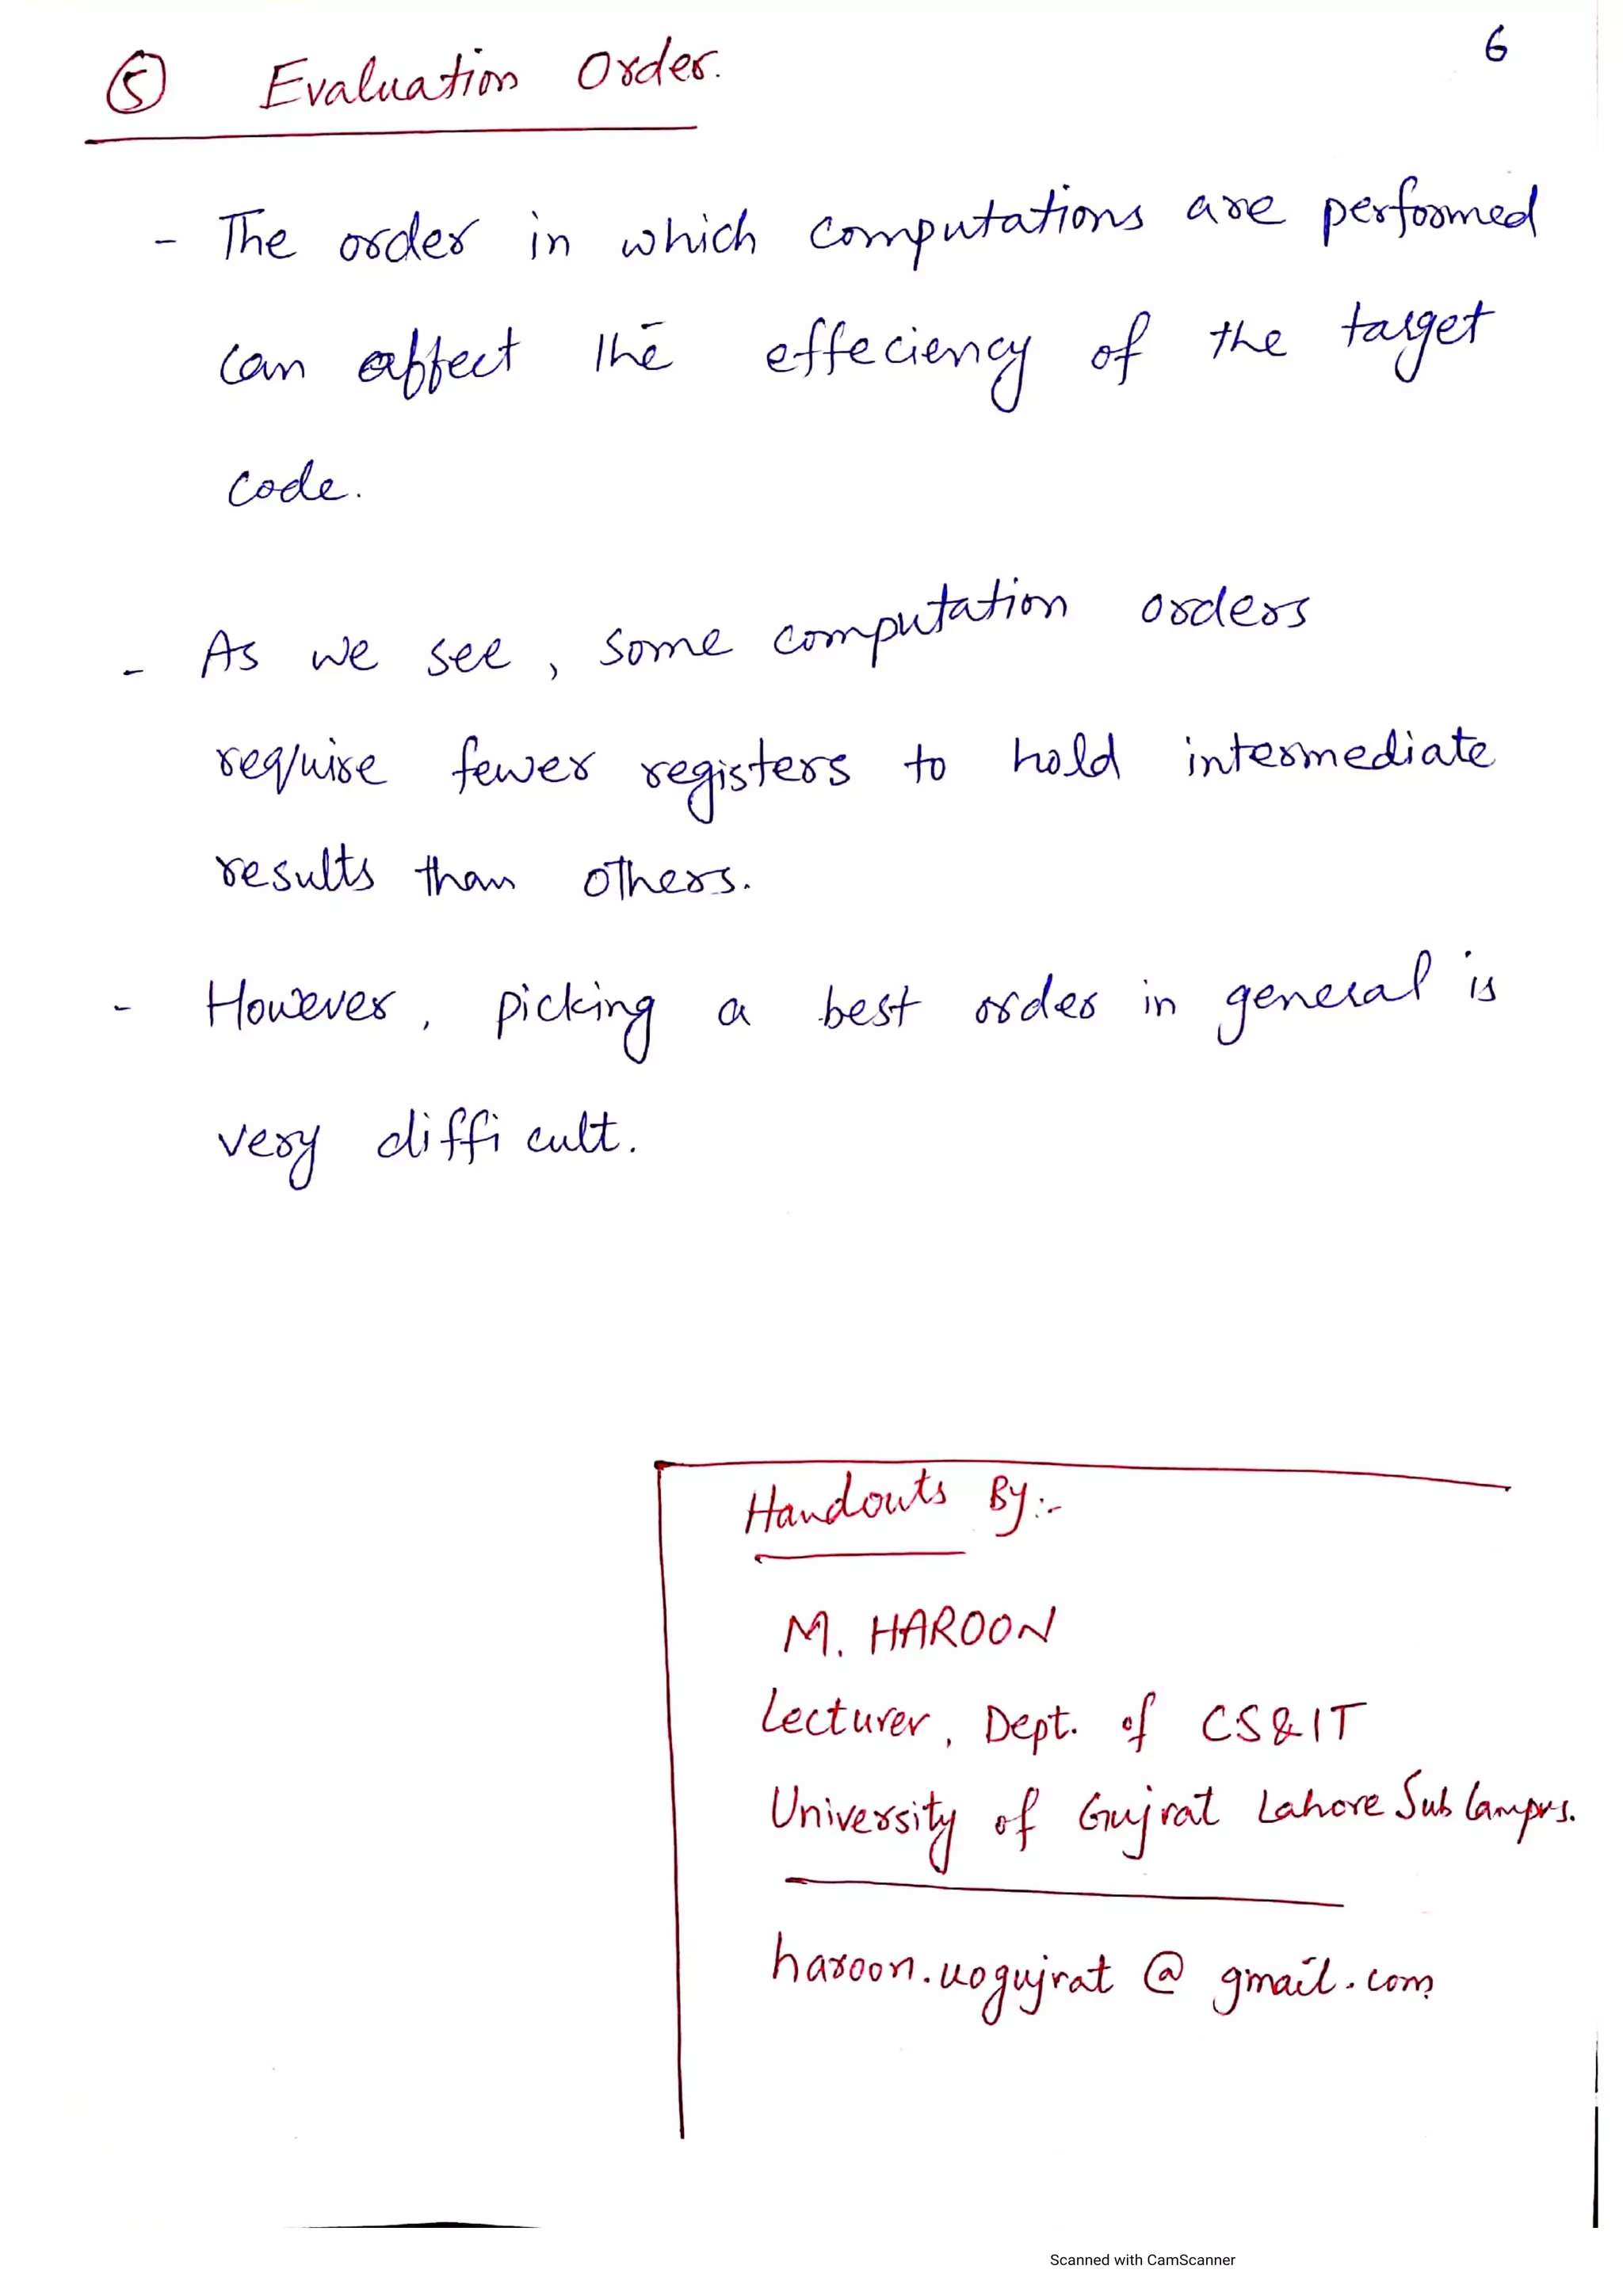 6
⑤ Evaluation Order.
- The order in which computations are performed
can affect the effeciency of the target
code.
- As we see, some computation orders
require fewer registers to hold intermediate
results than others.
- However, picking a best order in general is
very difficult.
Handouts By:-
M. HAROON
Lecturer, Dept. of CS&IT
University of Gujrat Lahore Sub Campus.
haroon.uogujrat @ gmail.com
Scanned with CamScanner